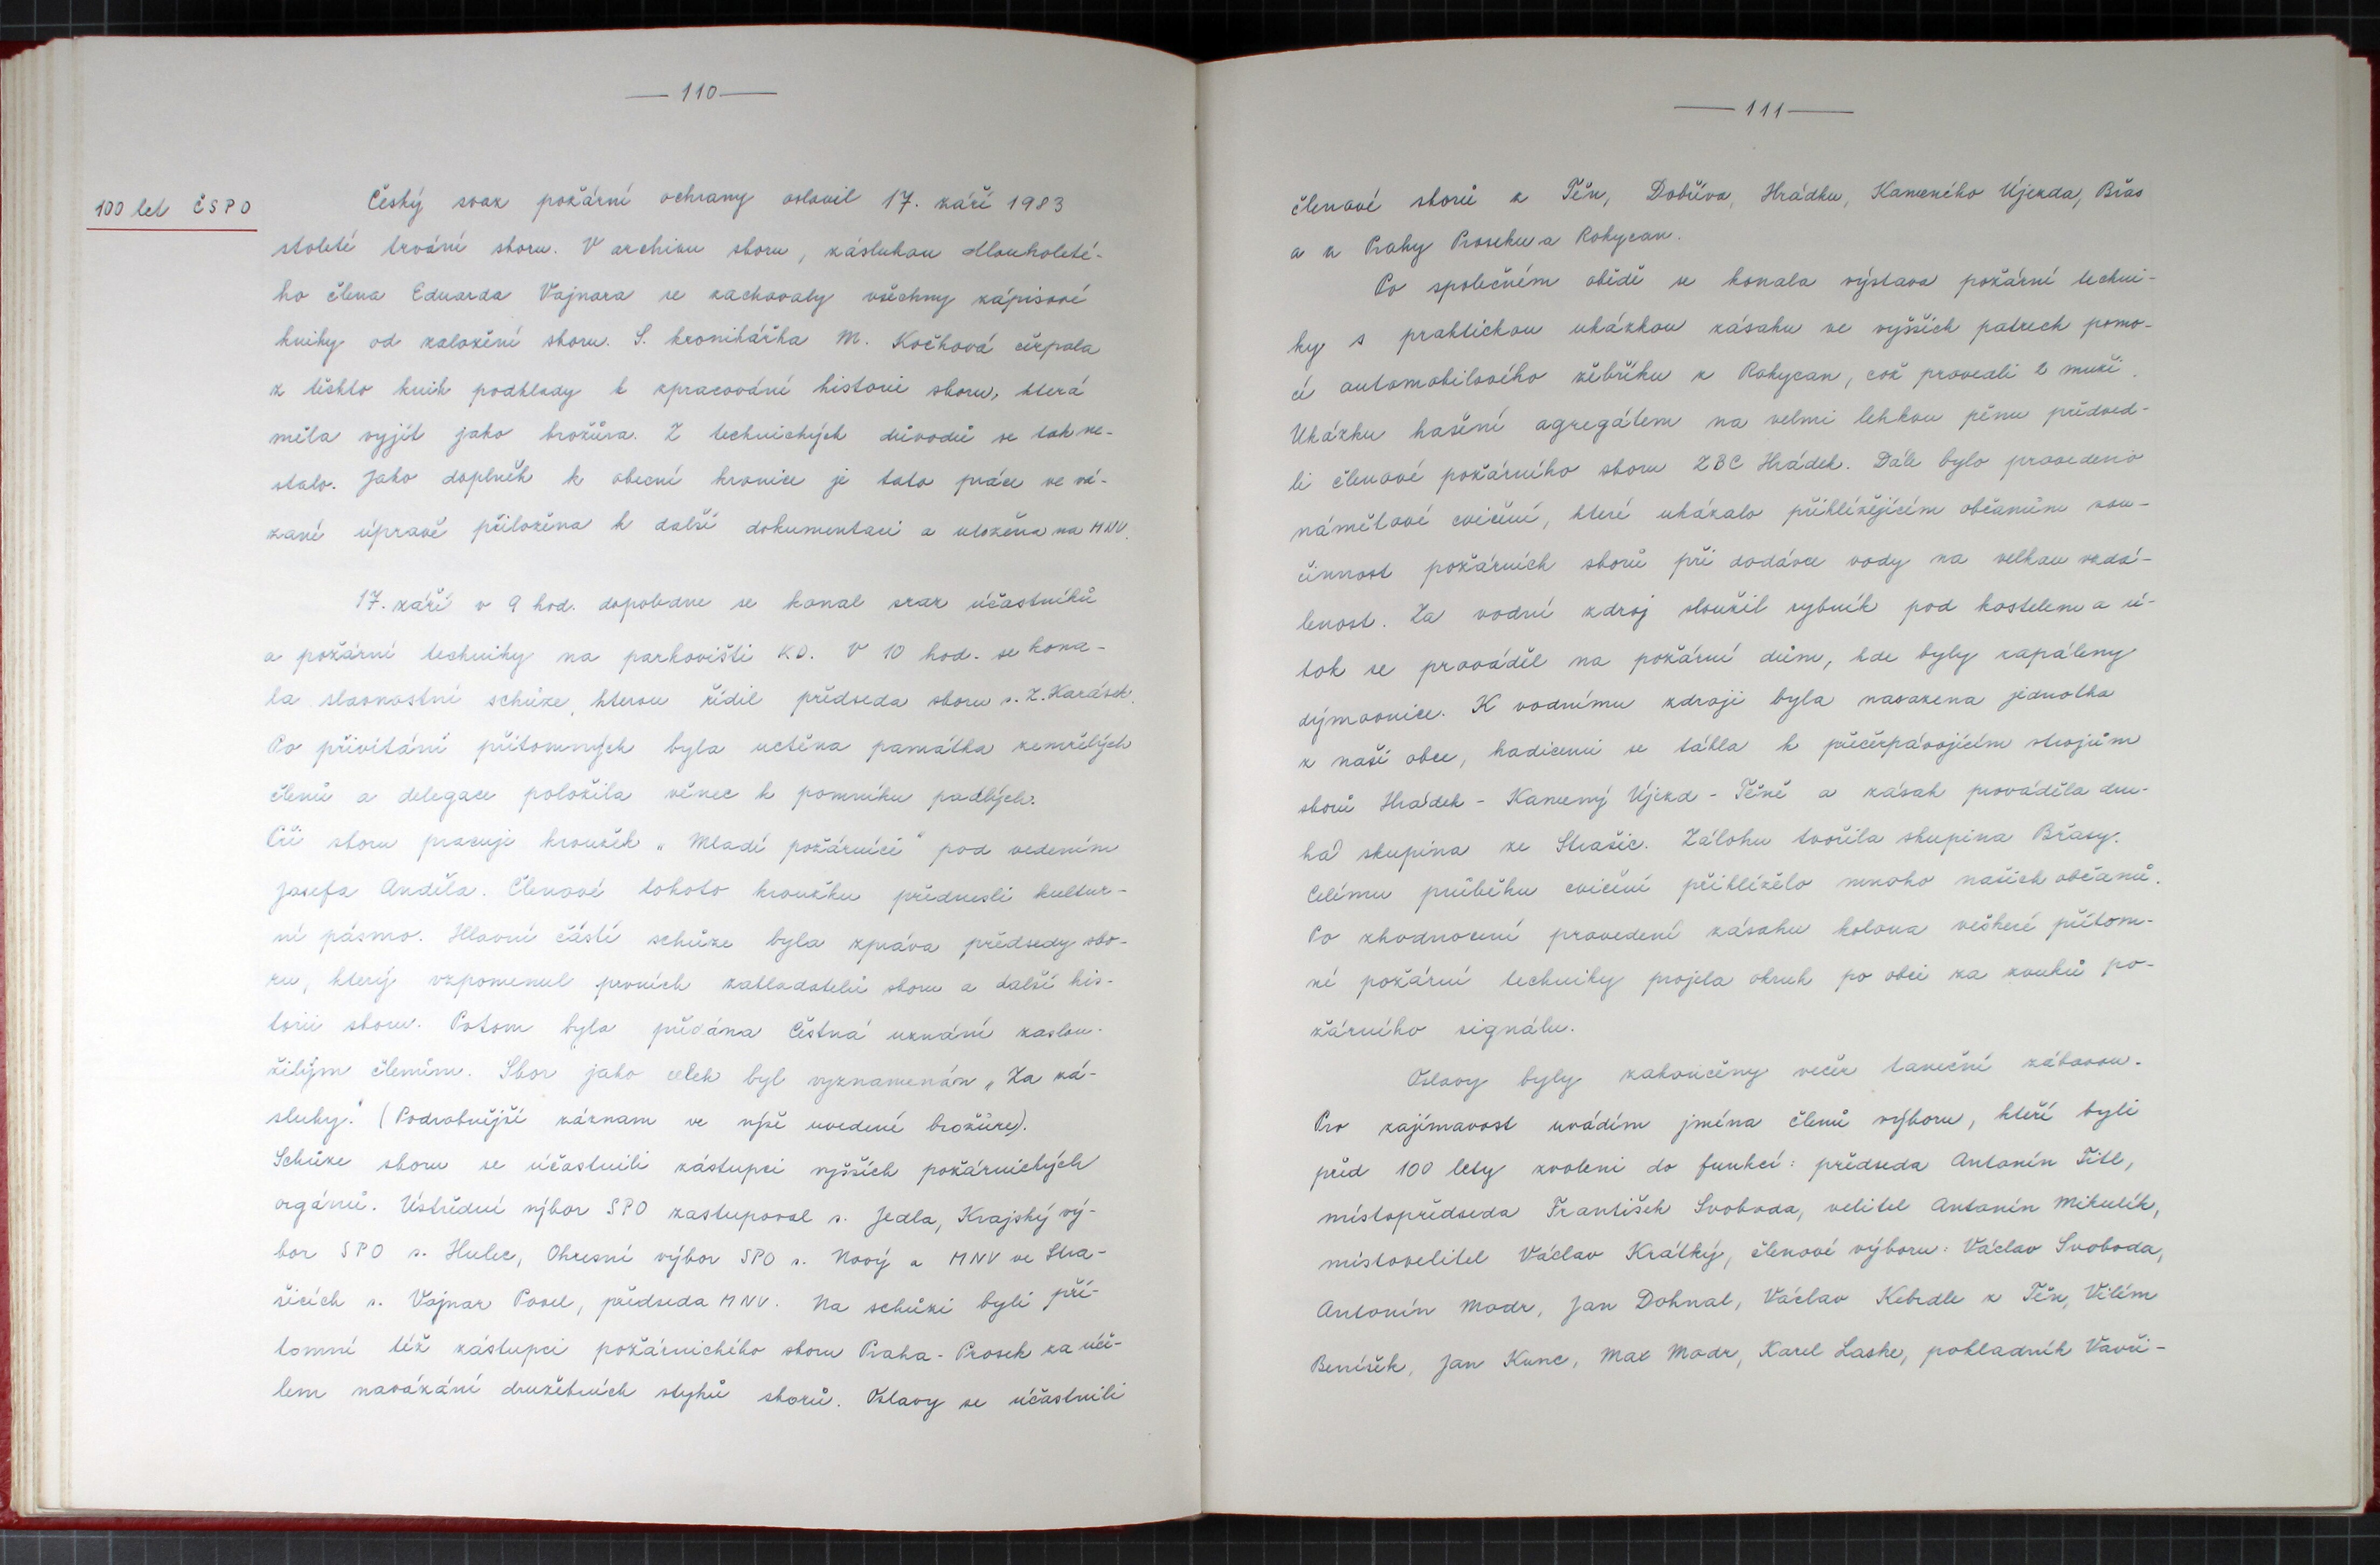 — 110 —
100 let ČSPO
Český svaz požární ochrany oslavil 17. září 1983
stoleté trvání sboru. V archivu sboru, zásluhou dlouholeté-
ho člena Eduarda Vajnara se zachovaly všechny zápisové
knihy od založení sboru. S. kronikářka M. Kočková čerpala
z těchto knih podklady k zpracování historie sboru, která
měla vyjít jako brožůra. Z technických důvodů se tak ne-
stalo. Jako doplněk k obecní kronice je tato práce ve vá-
zané úpravě přiložena k další dokumentaci a uložena na MNV.
17. září v 9 hod. dopoledne se konal sraz účastníků
a požární techniky na parkovišti KD. V 10 hod. se kona-
la slavnostní schůze, kterou řídil předseda sboru s. Z. Karásek.
Po přivítání přítomných byla uctěna památka zemřelých
členů a delegace položila věnec k pomníku padlých.
Při sboru pracuje kroužek „Mladí požárníci" pod vedením
Josefa Anděla. Členové tohoto kroužku přednesli kultur-
ní pásmo. Hlavní částí schůze byla zpráva předsedy sbo-
ru, který vzpomenul prvních zakladatelů sboru a další his-
torii sboru. Potom byla předána Čestná uznání zaslou-
žilým členům. Sbor jako celek byl vyznamenán „Za zá-
sluhy." (Podrobnější záznam ve výše uvedené brožůře).
Schůze sboru se účastnili zástupci vyšších požárnických
orgánů. Ústřední výbor SPO zastupoval s. Jedla, Krajský vý-
bor SPO s. Hulec, Okresní výbor SPO s. Nový a MNV ve Stra-
šicích s. Vajnar Pavel, předseda MNV. Na schůzi byli pří-
tomni též zástupci požárnického sboru Praha-Prosek za úče-
lem navázání družebních styků sborů. Oslavy se účastnili
— 111 —
členové sborů z Těn, Dobříva, Hrádku, Kameného Újezda, Břas
a z Prahy Proseku a Rokycan.
Po společném obědě se konala výstava požární techni-
ky s praktickou ukázkou zásahu ve vyšších patrech pomo-
cí automobilového žebříku z Rokycan, což provedli 2 muži.
Ukázku hašení agregátem na velmi lehkou pěnu předved-
li členové požárního sboru ZBC Hrádek. Dále bylo provedeno
námětové cvičení, které ukázalo přihlížejícím občanům sou-
činnost požárních sborů při dodávce vody na velkou vzdá-
lenost. Za vodní zdroj sloužil rybník pod kostelem a ú-
tok se prováděl na požární dům, kde byly zapáleny
dýmovnice. K vodnímu zdroji byla nasazena jednotka
z naší obce, hadicemi se táhla k přečerpávajícím strojům
sborů Hrádek - Kamený Újezd - Těně a zásah prováděla dru-
há skupina ze Strašic. Zálohu tvořila skupina Břasy.
Celému průběhu cvičení přihlíželo mnoho našich občanů.
Po zhodnocení provedení zásahu kolona veškeré přítom-
né požární techniky projela okruh po obci za zvuků po-
žárního signálu.
Oslavy byly zakončeny večer taneční zábavou.
Pro zajímavost uvádím jména členů výboru, kteří byli
před 100 lety zvoleni do funkcí: předseda Antonín Titl,
místopředseda František Svoboda, velitel Antonín Mikulík,
místovelitel Václav Krátký, členové výboru: Václav Svoboda,
Antonín Modr, Jan Dohnal, Václav Kebrdle z Těn, Vilém
Benišek, Jan Kunc, Max Modr, Karel Laske, pokladník Vavři-